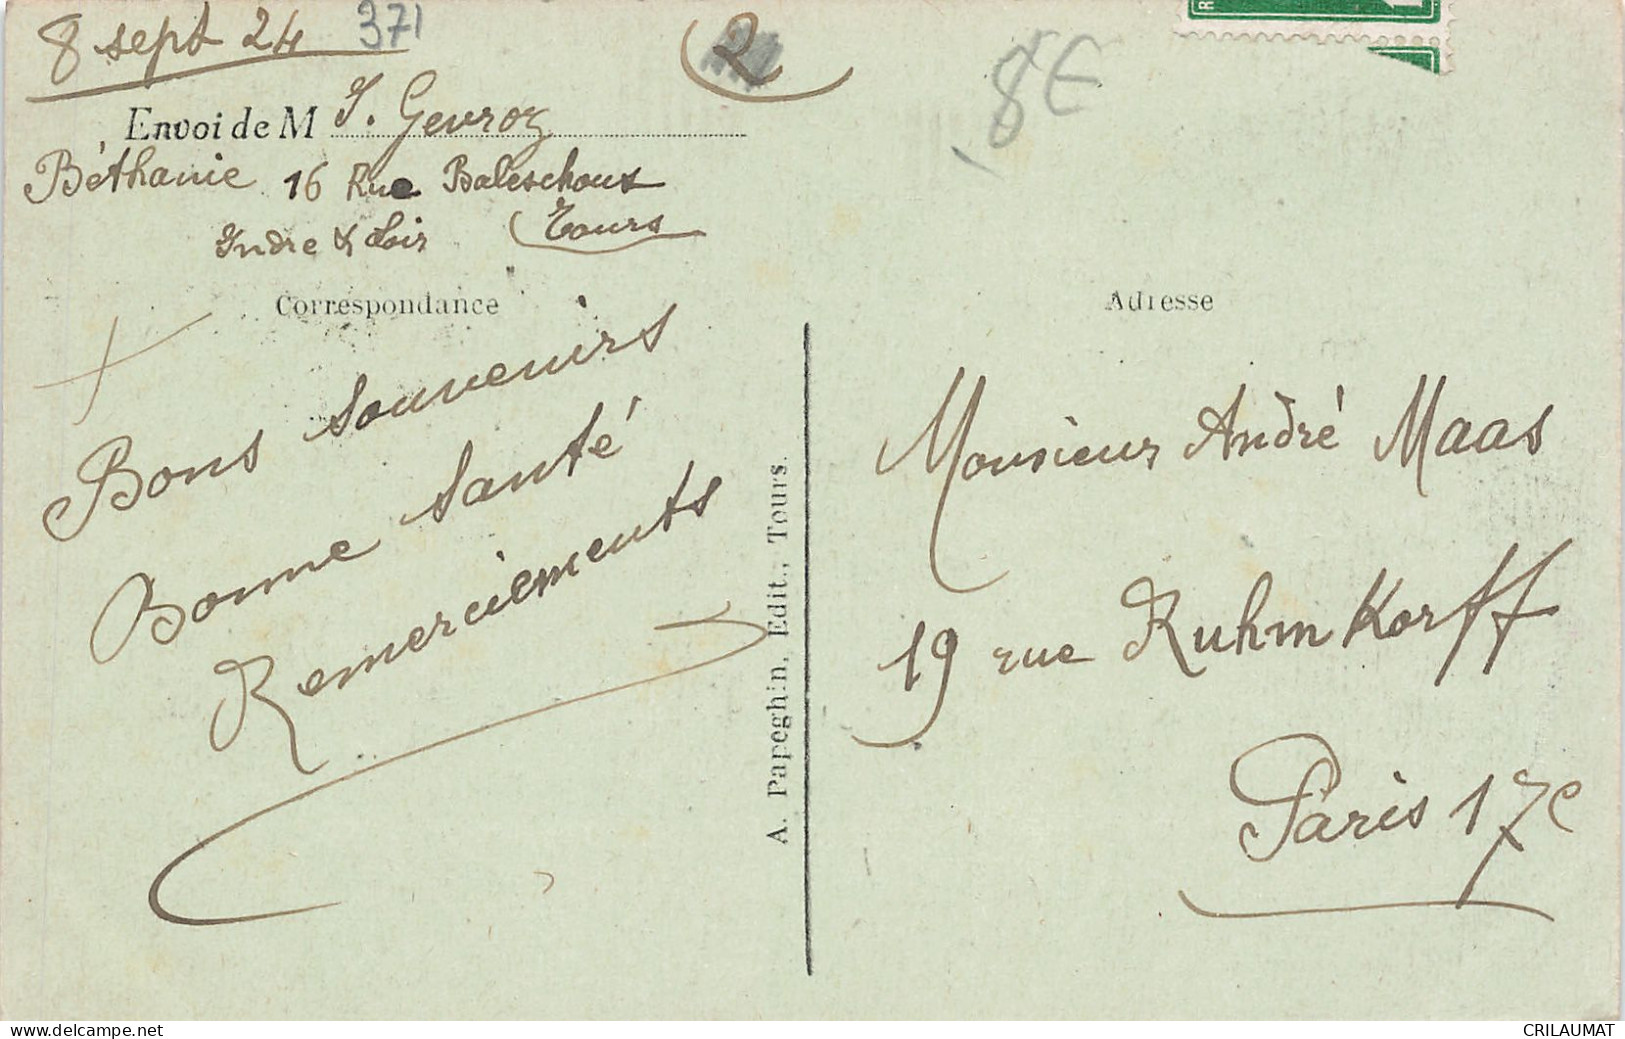 8 sept 24 371
2
8€
Envoi de M J. Gevroz
Béthanie 16 Rue Baleschoux
Indre & Loir Tours
Correspondance
Adresse
Bons souvenirs
Bonne santé
Remerciements
A. Papeghin, Edit., Tours.
Monsieur André Maas
19 rue Ruhmkorff
Paris 17e
www.delcampe.net
CRILAUMAT